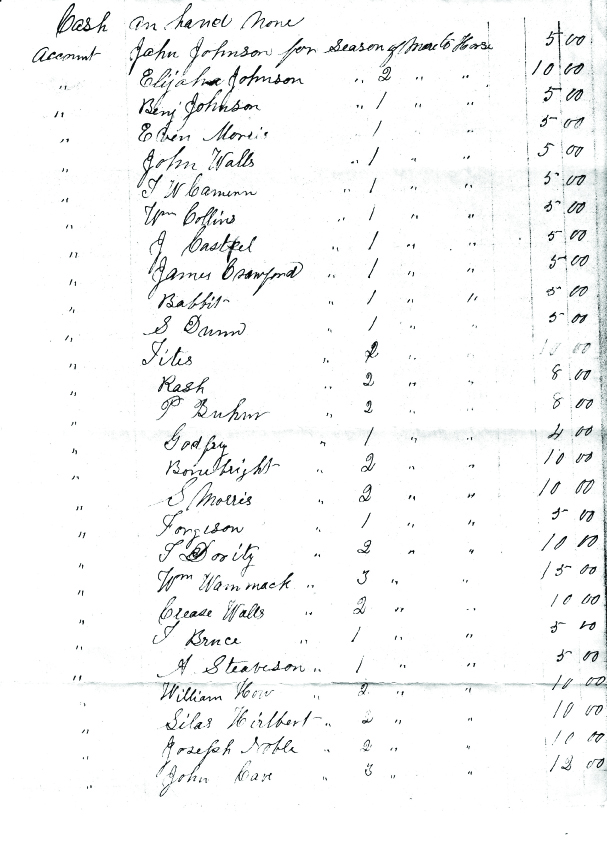 Cash on hand none
Account John Johnson for season of mare to Horse 5 00
" Elijah Johnson " 2 " " 10 00
" Benj Johnson " 1 " " 5 00
" Eben Morris 1 " " 5 00
" John Walls " 1 " " 5 00
" T W Camern " 1 " " 5 00
" Wm Collins " 1 " " 5 00
" J " 1 " " 5 00
" James Crawford " 1 " " 5 00
" Babbit " 1 " " 5 00
" S Dunn 1 " " 5 00
" Tites " 2 " " 10 00
" Rash " 2 " " 8 00
" P " 2 " " 8 00
" Godfey " 1 " " 4 00
" Bonebright " 2 " " 10 00
" S Morris " 2 " " 10 00
" Forgison " 1 " " 5 00
" T Dority " 2 " " 10 00
" Wm Wammack " 3 " " 15 00
" Crease Walls " 2 " " 10 00
" T Bruce 1 " " 5 00
" A Steaveson " 1 " " 5 00
" William How " 2 " " 10 00
" Silas Hirlbert " 2 " " 10 00
" Joseph Noble " 2 " " 10 00
" John Cave " 3 " " 12 00